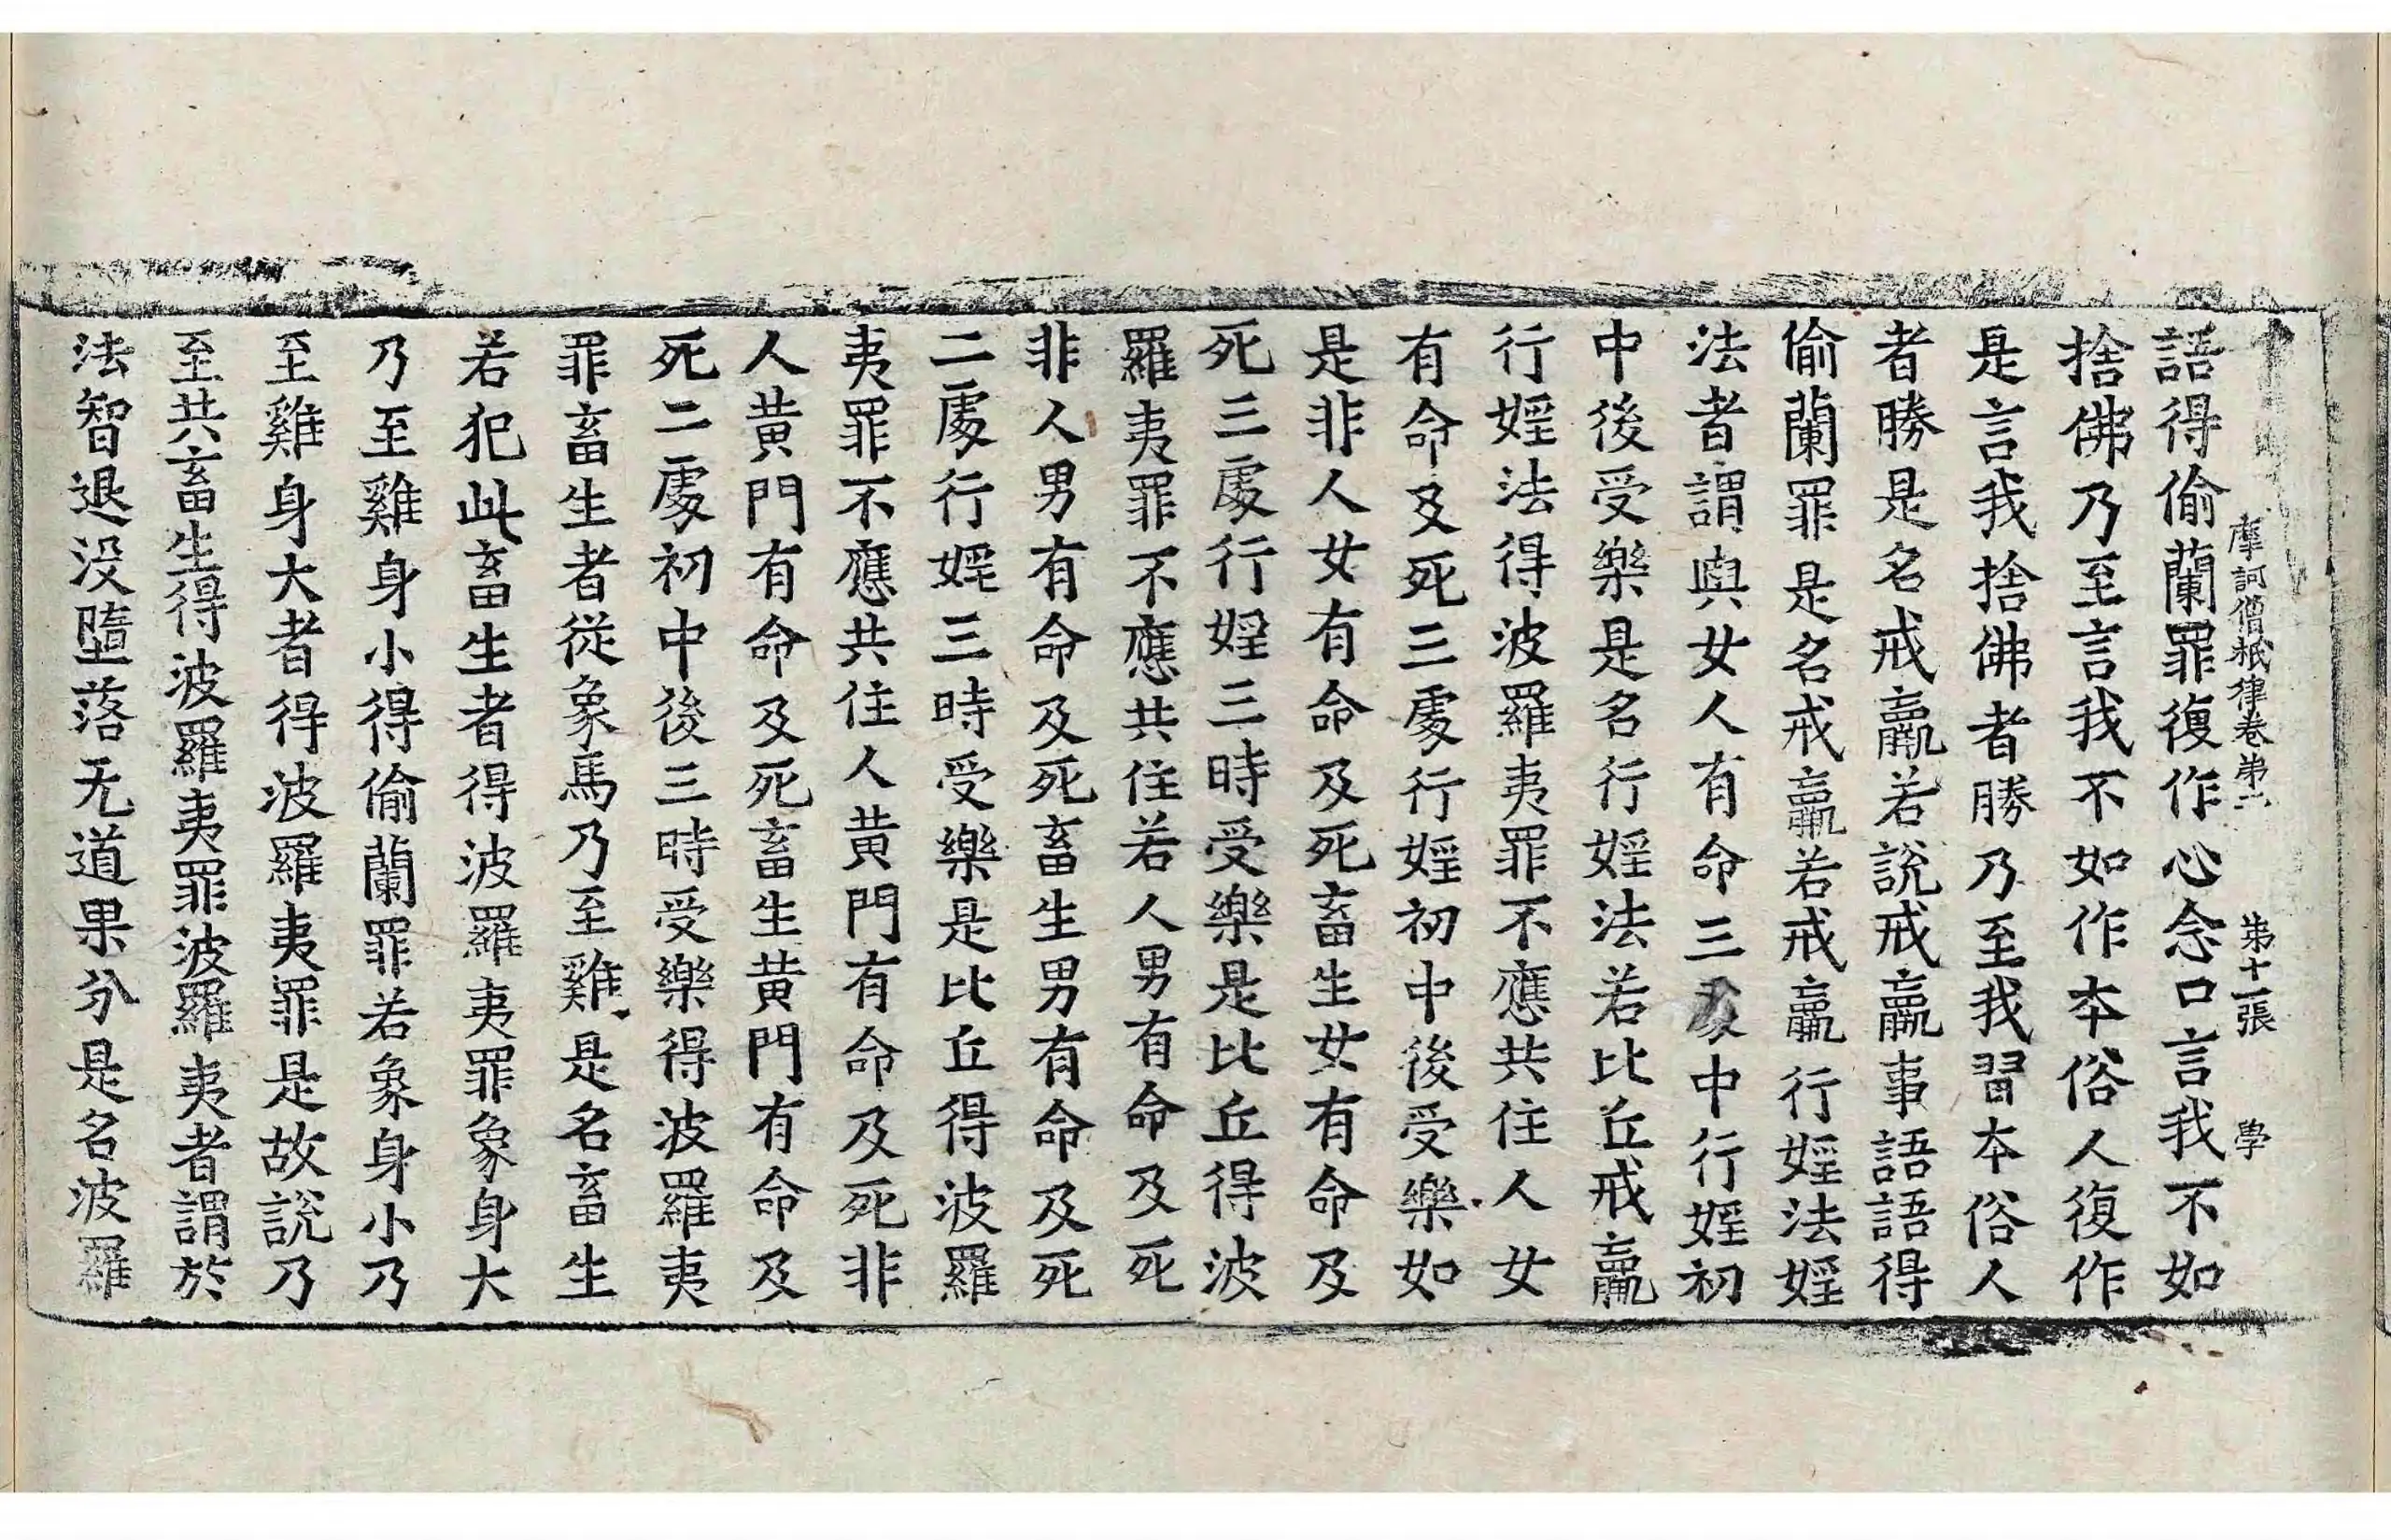 摩訶僧祇律卷第二　第十一張　學
語得偷蘭罪復作心念口言我不如
捨佛乃至言我不如作本俗人復作
是言我捨佛者勝乃至我習本俗人
者勝是名戒羸若說戒羸事語語得
偷蘭罪是名戒羸若戒羸行婬法婬
法者謂與女人有命三處中行婬初
中後受樂是名行婬法若比丘戒羸
行婬法得波羅夷罪不應共住人女
有命及死三處行婬初中後受樂如
是非人女有命及死畜生女有命及
死三處行婬三時受樂是比丘得波
羅夷罪不應共住若人男有命及死
非人男有命及死畜生男有命及死
二處行婬三時受樂是比丘得波羅
夷罪不應共住人黃門有命及死非
人黃門有命及死畜生黃門有命及
死二處初中後三時受樂得波羅夷
罪畜生者從象馬乃至雞是名畜生
若犯此畜生者得波羅夷罪象身大
乃至雞身小得偷蘭罪若象身小乃
至雞身大者得波羅夷罪是故說乃
至共畜生得波羅夷罪波羅夷者謂於
法智退没墮落无道果分是名波羅